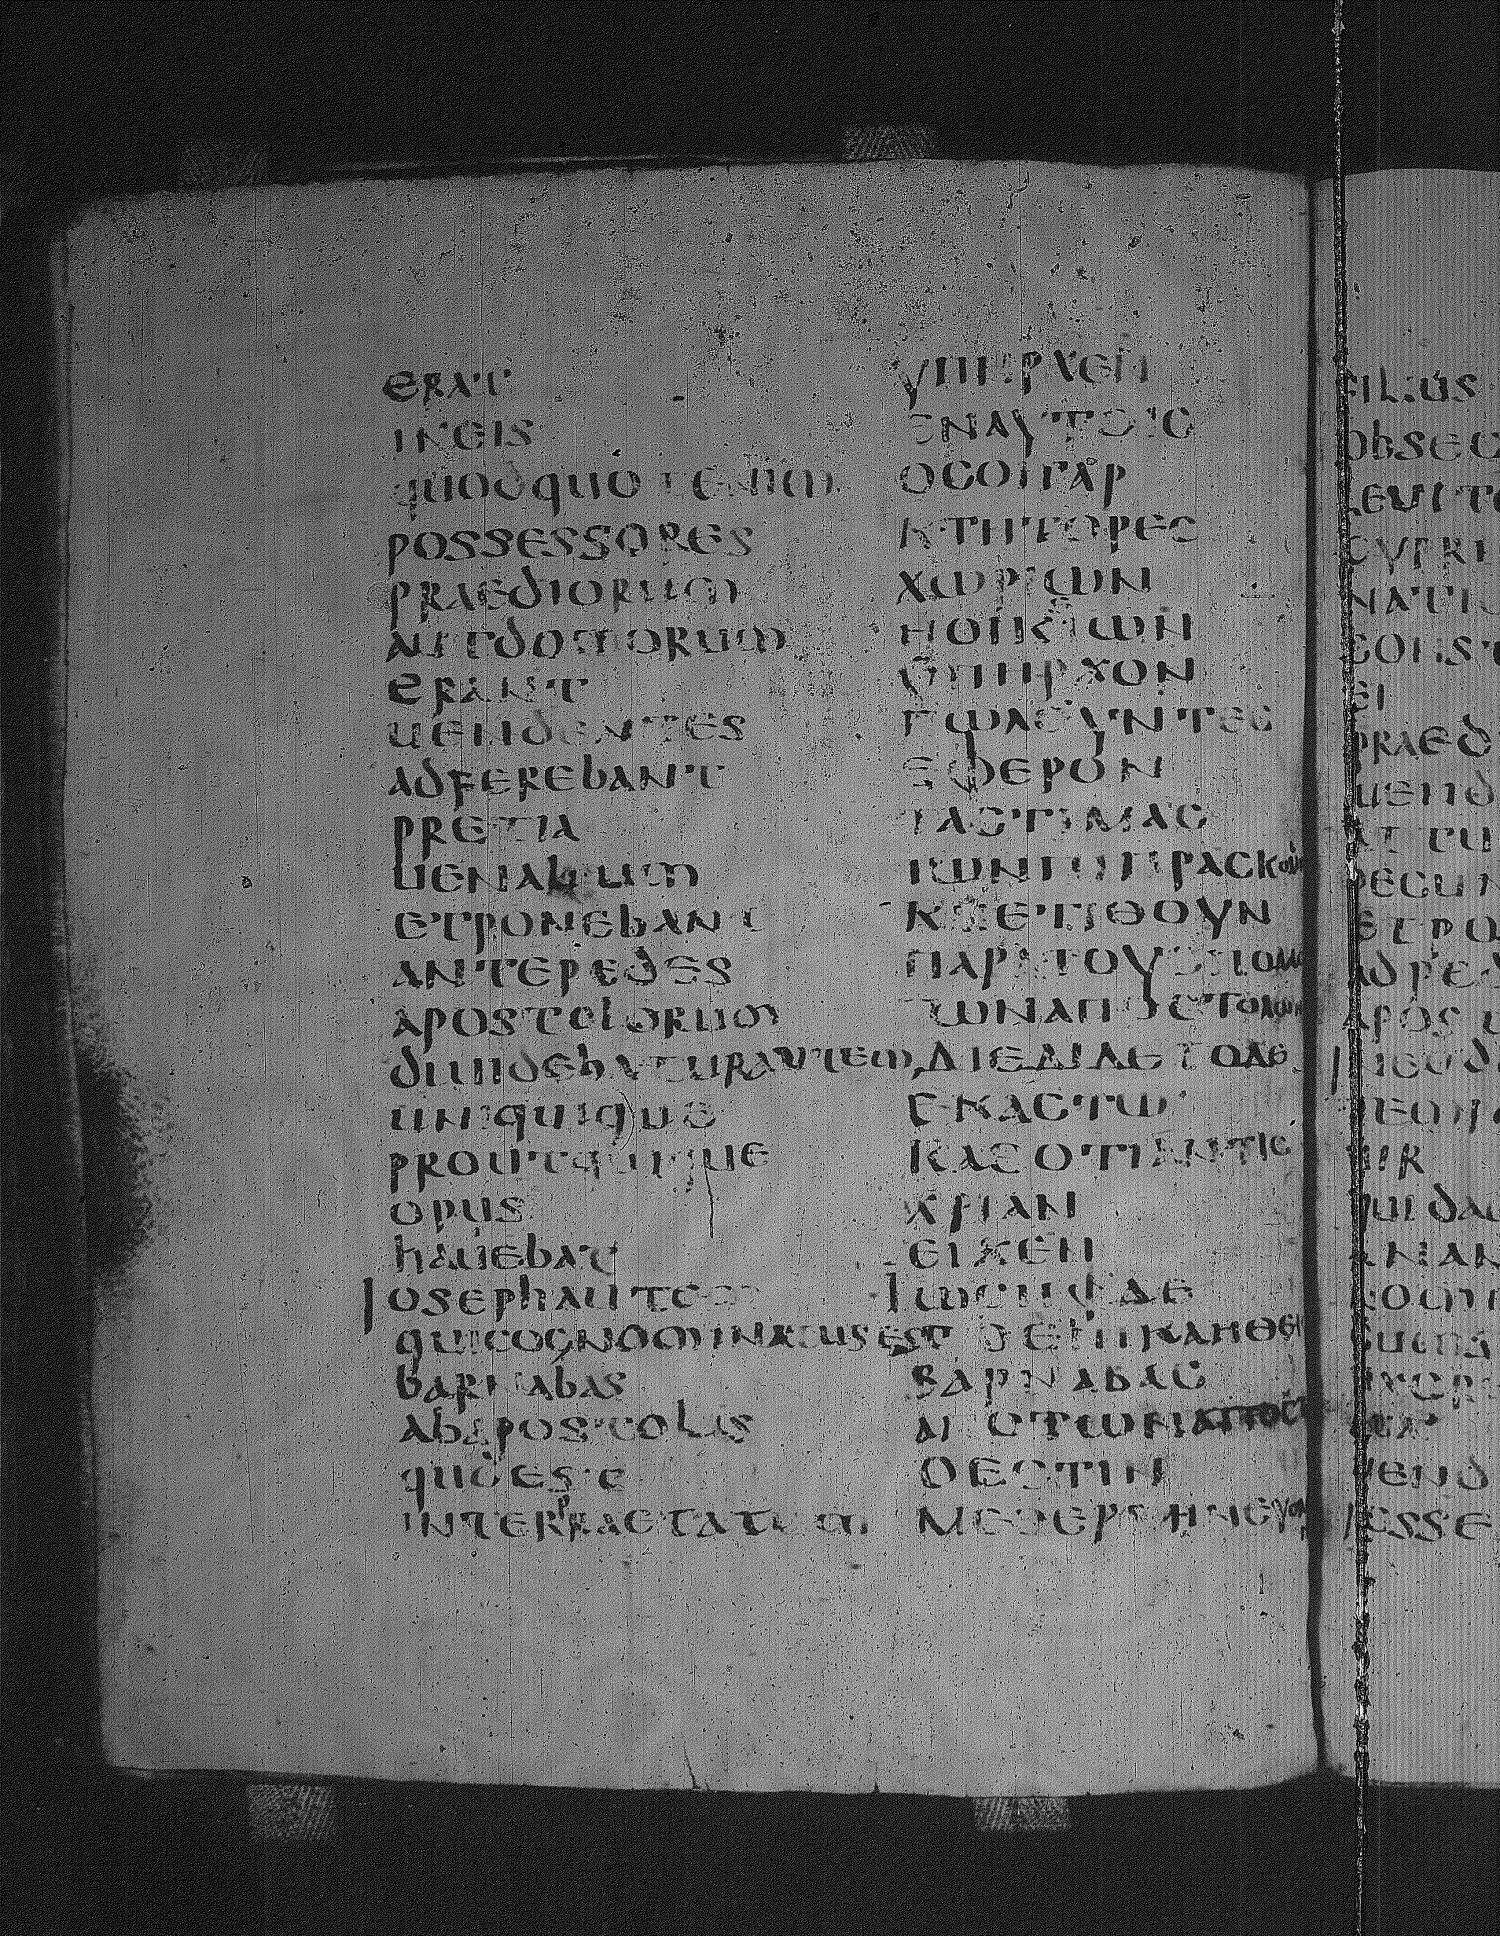 ERAT
INEIS
QUODQUOTENIM
POSSESSORES
PRAEDIORUM
AUTDOMORUM
ERANT
UENDENTES
ADFEREBANT
PRETIA
UENALIUM
ETPONEBANT
ANTEPEDES
APOSTOLORUM
DIUIDEBATURAUTEM
UNIQUIQUE
PROUTQUIQUE
OPUS
HAUEBAT
IOSEPHAUTEM
QUICOGNOMINATUSEST
BARNABAS
ABAPOSTOLIS
QUODEST
INTERPRAETATUM
ΥΠΗΡΧΕΝ
ΕΝΑΥΤΟΙϹ
ΟϹΟΙΓΑΡ
ΚΤΗΤΟΡΕϹ
ΧΩΡΙΩΝ
ΗΟΙΚΙΩΝ
ΥΠΗΡΧΟΝ
ΠΩΛΟΥΝΤΕϹ
ΕΦΕΡΟΝ
ΤΑϹΤΙΜΑϹ
ΤΩΝΠΙΠΡΑϹΚΟΜ
ΚΑΙΕΤΙΘΟΥΝ
ΠΑΡΑΤΟΥϹΠΟΔΑϹ
ΤΩΝΑΠΟϹΤΟΛΩΝ
ΔΙΕΔΙΔΕΤΟΔΕ
ΕΚΑϹΤΩ
ΚΑΘΟΤΙΑΝΤΙϹ
ΧΡΙΑΝ
ΕΙΧΕΝ
ΙΩϹΗΦΔΕ
ΟΕΠΙΚΛΗΘΕΙ
ΒΑΡΝΑΒΑϹ
ΑΠΟΤΩΝΑΠΟϹ
ΟΕϹΤΙΝ
ΜΕΘΕΡΜΗΝΕΥΟΜ
FILIUS
EI
UIR